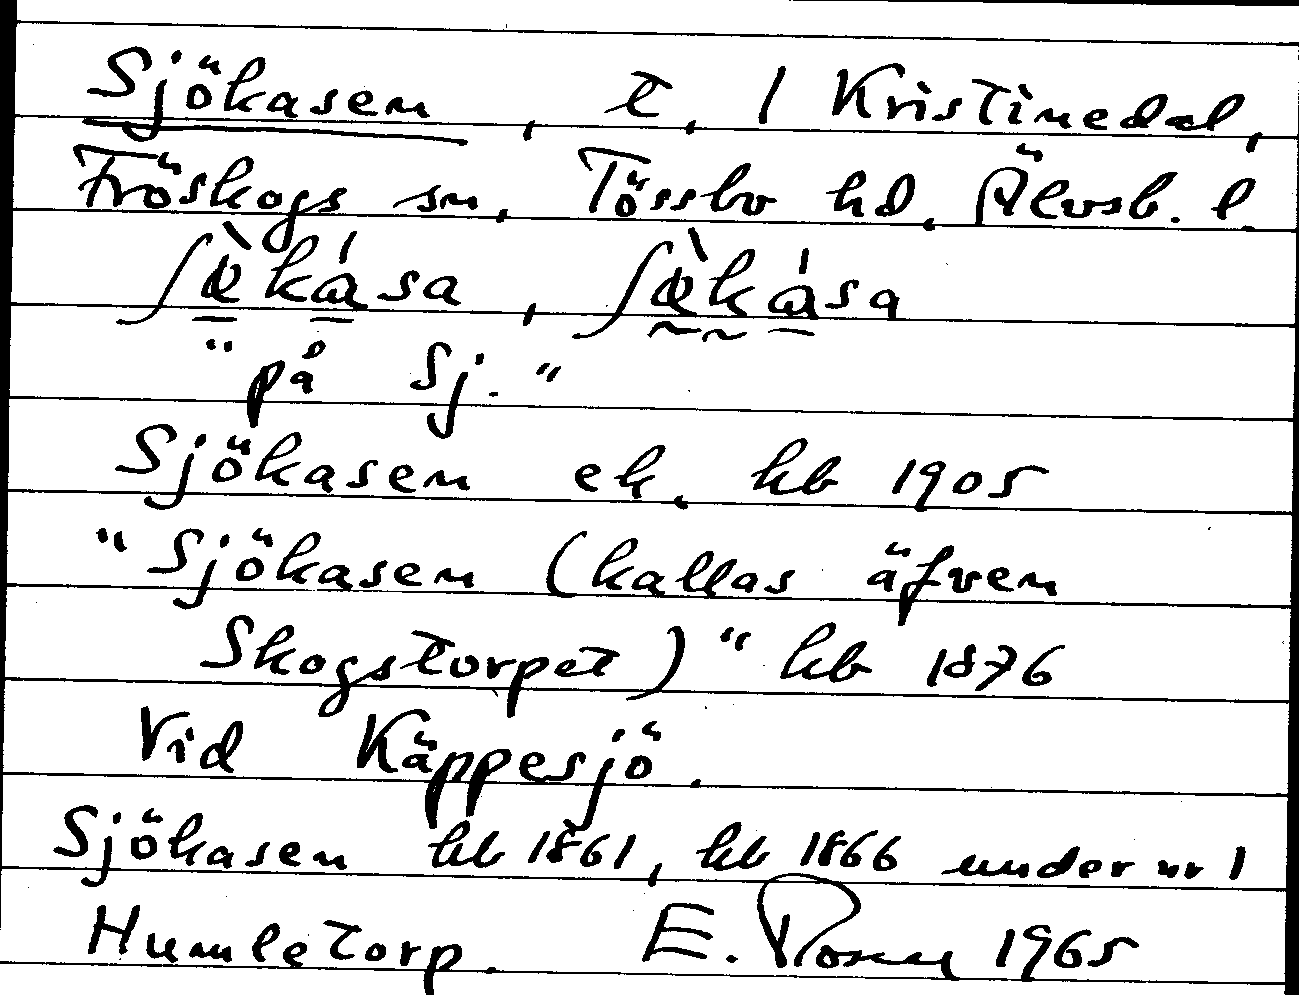 Sjökasen, t. 1 Kristinedal,
Fröskogs sn, Tössbo hd, Älvsb. l.
ʃæ̀kása, ʃæ̀kása
"på Sj."
Sjökasen ek. kb 1905
"Sjökasen (kallas äfven
Skogstorpet)" kb 1876
Vid Käppesjö.
Sjökasen kb 1861, kb 1866 under nr 1
Humletorp. E. Rosell 1965